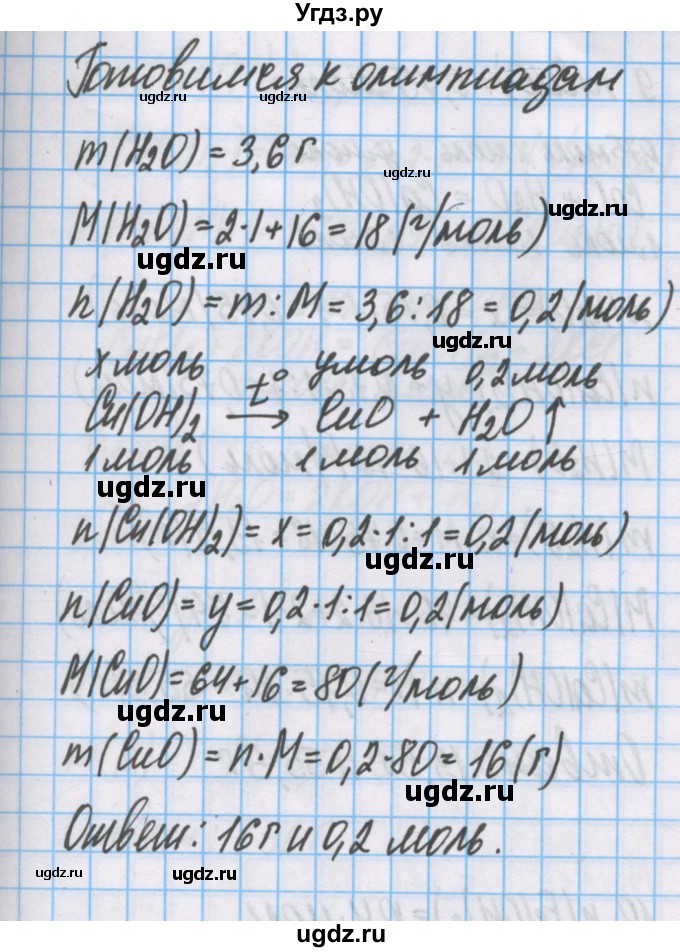 Угдз.ру
Готовимся к олимпиадам
ugdz.ru ugdz.ru
m(H₂O) = 3,6 г
ugdz.ru
M(H₂O) = 2·1+16 = 18 (г/моль)
ugdz.ru
ugdz.ru
n(H₂O) = m : M = 3,6 : 18 = 0,2 (моль)
x моль y моль 0,2 моль
ugdz.ru
Cu(OH)₂ —t°→ CuO + H₂O↑
1 моль 1 моль 1 моль
ugdz.ru
n(Cu(OH)₂) = x = 0,2·1:1 = 0,2 (моль)
ugdz.ru
n(CuO) = y = 0,2·1:1 = 0,2 (моль)
ugdz.ru
M(CuO) = 64+16 = 80 (г/моль)
ugdz.ru
m(CuO) = n·M = 0,2·80 = 16 (г)
ugdz.ru
Ответ: 16 г и 0,2 моль.
ugdz.ru ugdz.ru ugdz.ru